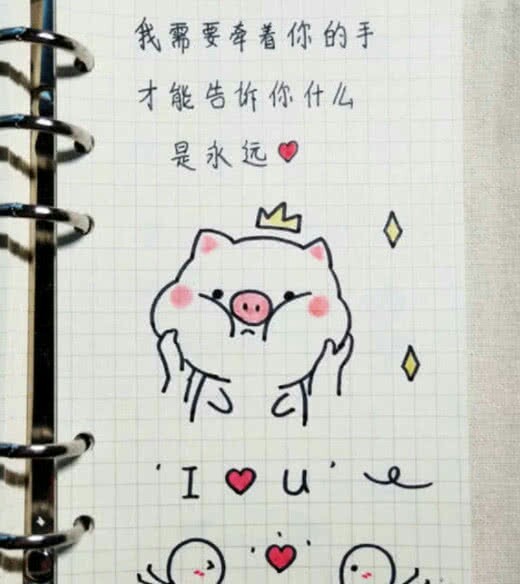 我需要牵着你的手
才能告诉你什么
是永远❤
'I ❤ U'